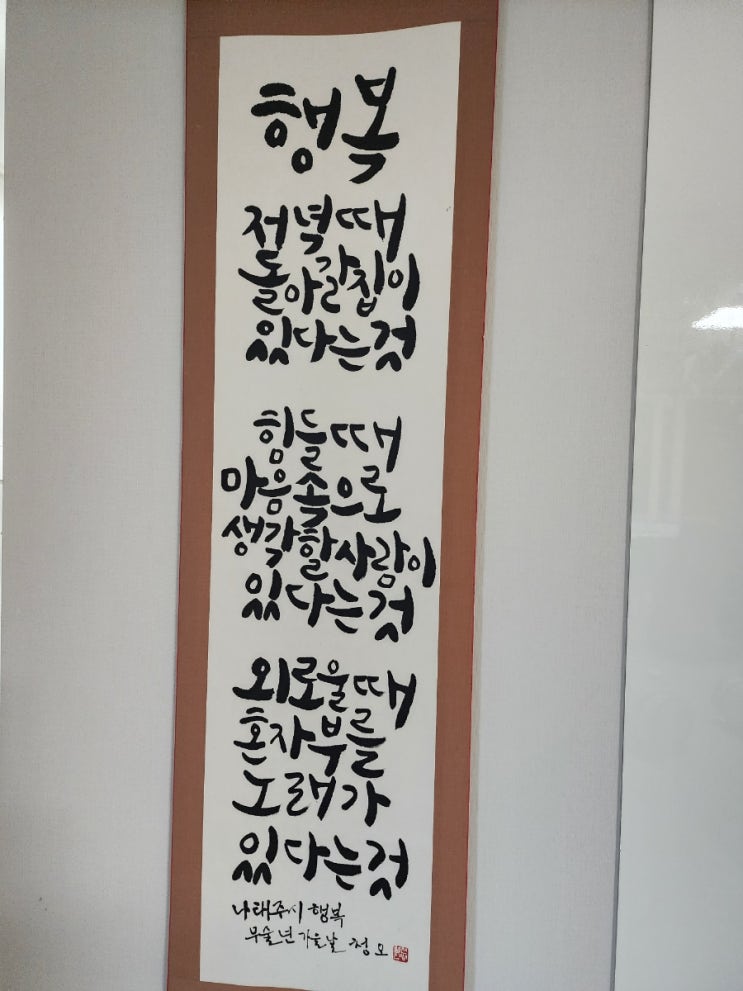 행복
저녁때
돌아갈집이
있다는것
힘들때
마음속으로
생각할사람이
있다는것
외로울때
혼자부를
노래가
있다는것
나태주시 행복
무술년 가을날 정오